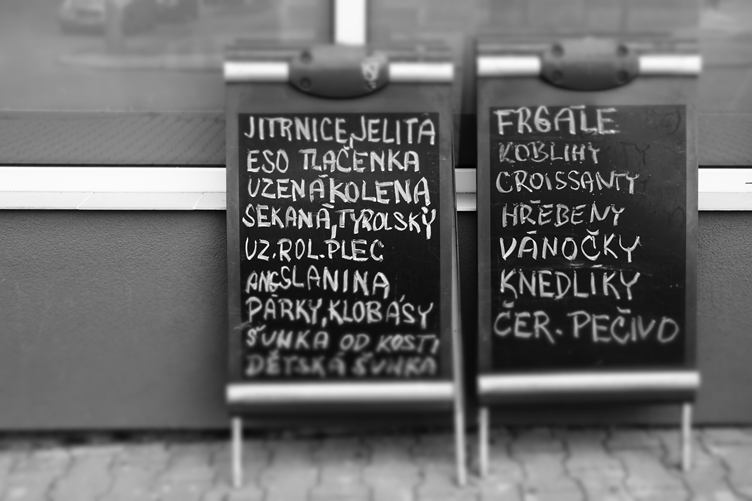 JITRNICE, JELITA
ESO TLAČENKA
UZENÁ KOLENA
SEKANÁ, TYROLSKÝ
UZ. ROL. PLEC
ANG SLANINA
PÁRKY, KLOBÁSY
ŠUNKA OD KOSTI
DĚTSKÁ ŠUNKA
FRGÁLE
KOBLIHY
CROISSANTY
HŘEBENY
VÁNOČKY
KNEDLÍKY
ČER. PEČIVO